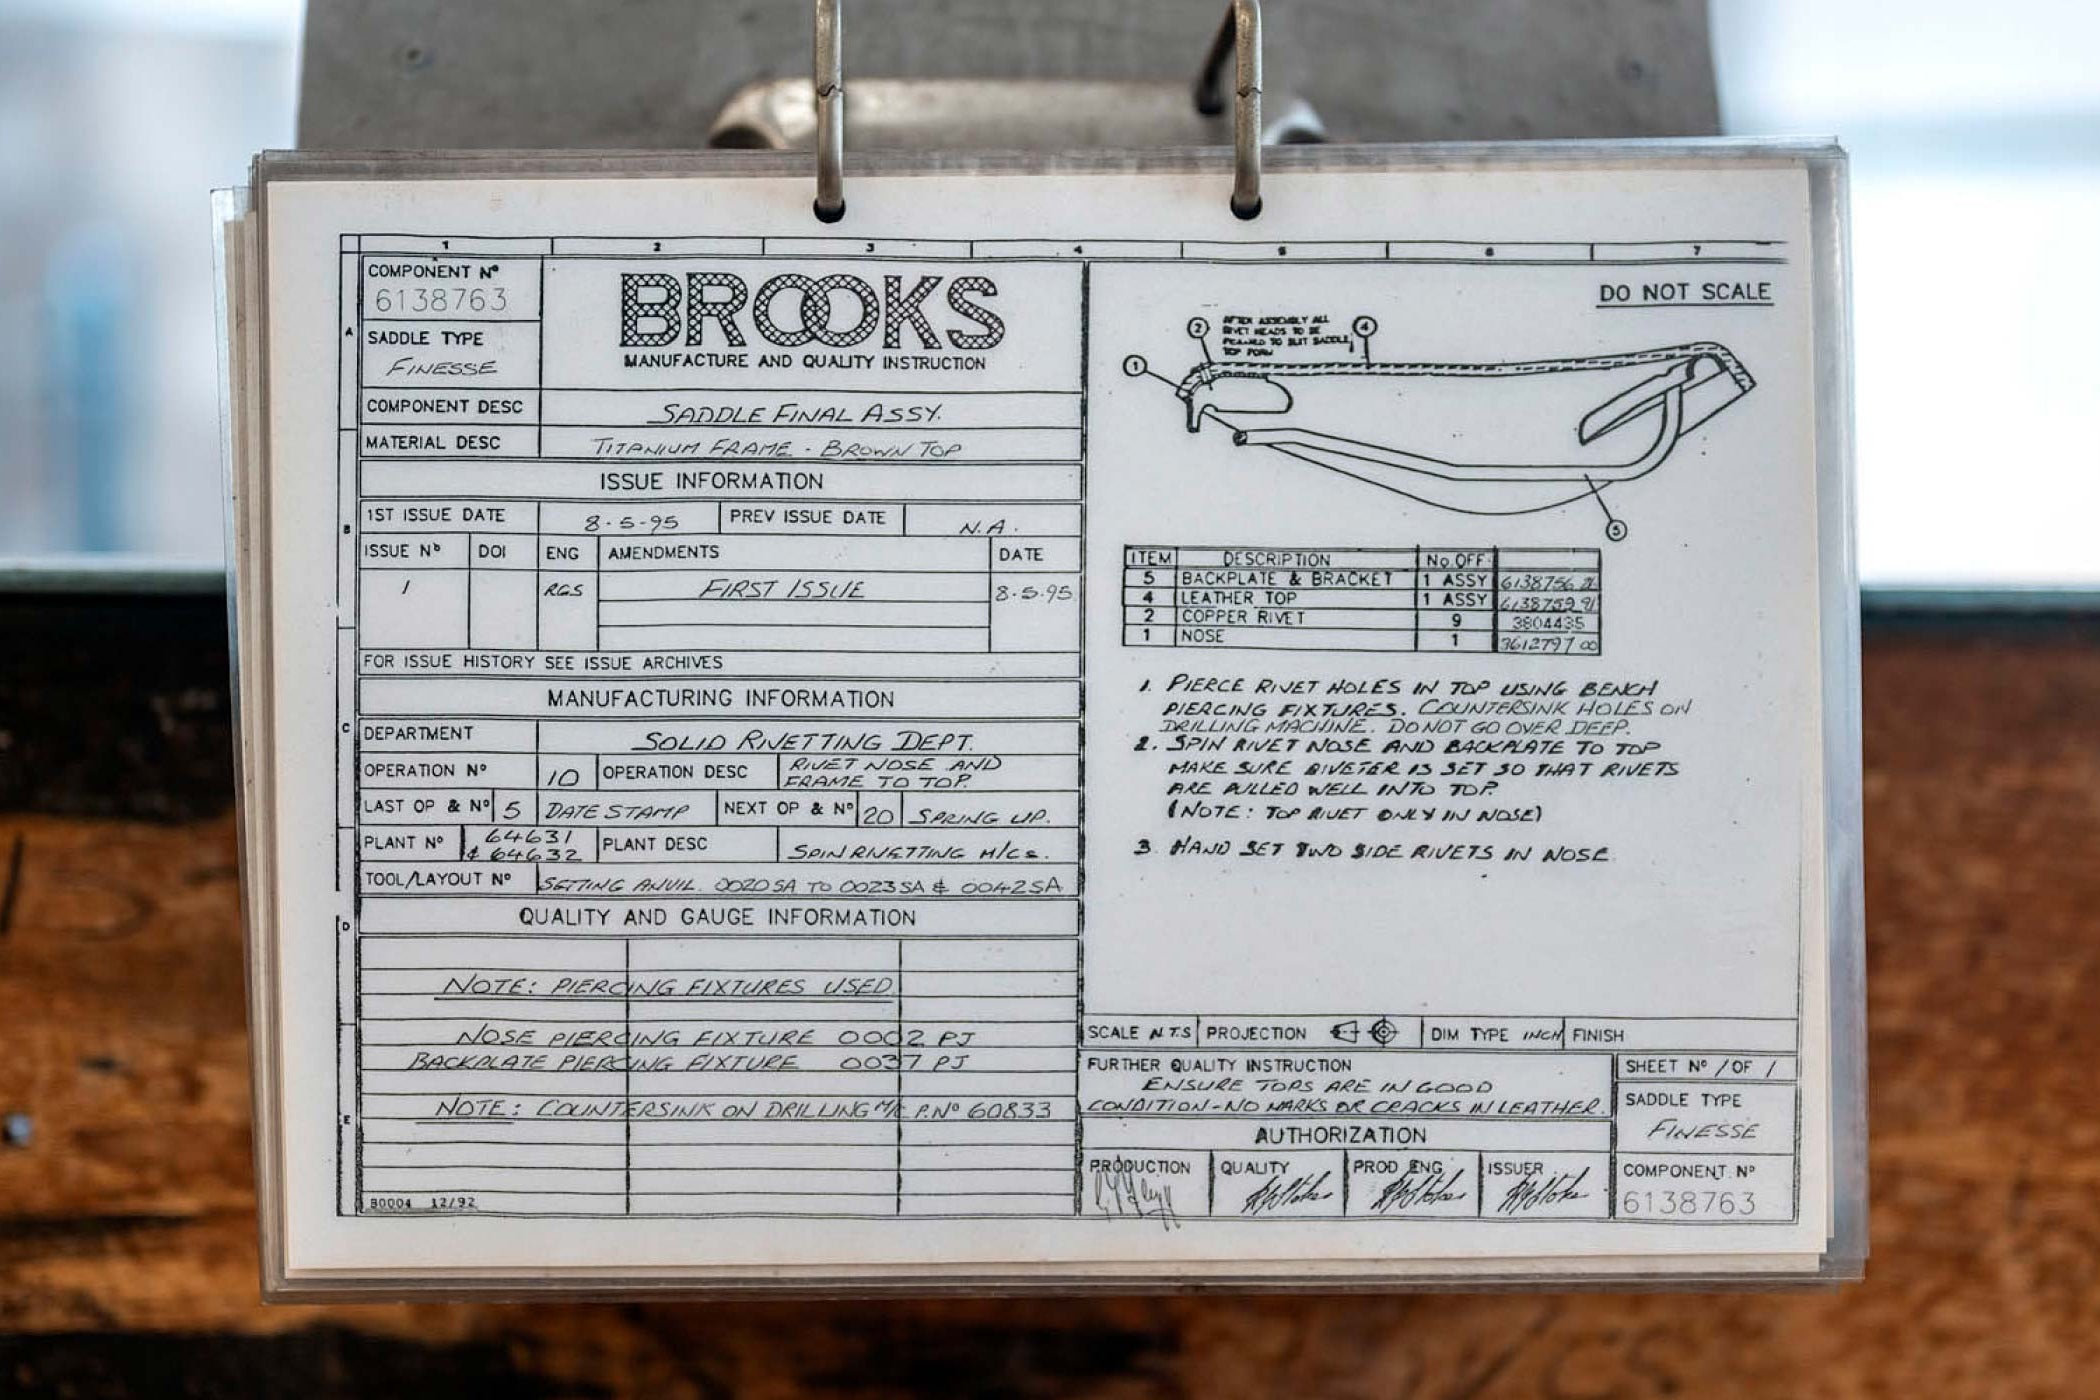 1 2 3 4 5 6 7
A
B
C
D
E
COMPONENT Nº
6138763
SADDLE TYPE
FINESSE
BROOKS
MANUFACTURE AND QUALITY INSTRUCTION
COMPONENT DESC SADDLE FINAL ASSY.
MATERIAL DESC TITANIUM FRAME - BROWN TOP
ISSUE INFORMATION
1ST ISSUE DATE 8-5-95 PREV ISSUE DATE N.A.
ISSUE Nº DOI ENG AMENDMENTS DATE
1 RGS FIRST ISSUE 8-5-95
FOR ISSUE HISTORY SEE ISSUE ARCHIVES
MANUFACTURING INFORMATION
DEPARTMENT SOLID RIVETTING DEPT.
OPERATION Nº 10 OPERATION DESC RIVET NOSE AND
FRAME TO TOP.
LAST OP & Nº 5 DATE STAMP NEXT OP & Nº 20 SPRING UP.
PLANT Nº 64631
& 64632 PLANT DESC SPIN RIVETTING M/CS.
TOOL/LAYOUT Nº SETTING ANVIL. 0020SA TO 0023SA & 0042SA
QUALITY AND GAUGE INFORMATION
NOTE: PIERCING FIXTURES USED
NOSE PIERCING FIXTURE 0002 PJ
BACKPLATE PIERCING FIXTURE 0037 PJ
NOTE: COUNTERSINK ON DRILLING M/C P.Nº 60833
B0004 12/92
DO NOT SCALE
AFTER ASSEMBLY ALL
RIVET HEADS TO BE
PEANED TO SUIT SADDLE
TOP FORM
2
4
1
5
ITEM DESCRIPTION No.OFF
5 BACKPLATE & BRACKET 1 ASSY 6138756
4 LEATHER TOP 1 ASSY 6138759 91
2 COPPER RIVET 9 3804435
1 NOSE 1 3612797 00
1. PIERCE RIVET HOLES IN TOP USING BENCH
PIERCING FIXTURES. COUNTERSINK HOLES ON
DRILLING MACHINE. DO NOT GO OVER DEEP.
2. SPIN RIVET NOSE AND BACKPLATE TO TOP
MAKE SURE RIVETER IS SET SO THAT RIVETS
ARE PULLED WELL INTO TOP.
(NOTE: TOP RIVET ONLY IN NOSE)
3 HAND SET TWO SIDE RIVETS IN NOSE
SCALE N.T.S PROJECTION DIM TYPE INCH FINISH
FURTHER QUALITY INSTRUCTION
ENSURE TOPS ARE IN GOOD
CONDITION - NO MARKS OR CRACKS IN LEATHER.
SHEET Nº 1 OF 1
SADDLE TYPE
FINESSE
AUTHORIZATION
PRODUCTION QUALITY PROD ENG ISSUER
COMPONENT Nº
6138763